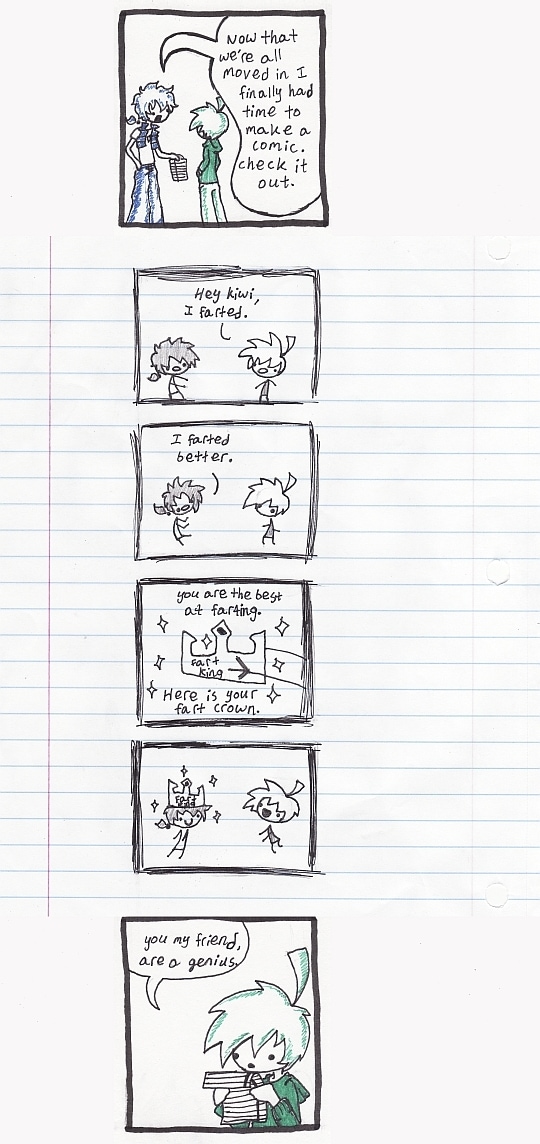 Now that
we're all
moved in I
finally had
time to
make a
comic.
check it
out.
Hey kiwi,
I farted.
I farted
better.
you are the best
at farting.
fart
king
Here is your
fart crown.
fart
king
you my friend,
are a genius.